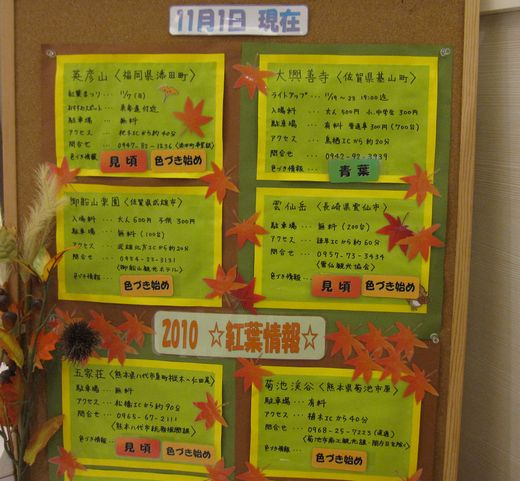 11月1日 現在
英彦山〈福岡県添田町〉
紅葉まつり … 11/7(日)
おすすめスポット …
駐車場 … 無料
アクセス … 杷木ICから約40分
問合せ … 0947-82-1236
色づき情報
見頃
色づき始め
大興善寺〈佐賀県基山町〉
ライトアップ … 11/19〜23 19:00迄
入場料 … 大人500円 小、中学生 300円
駐車場 … 有料 普通車300円(700台)
アクセス … 鳥栖ICから約20分
問合せ … 0942-92-3939
色づき情報…
青葉
御船山楽園〈佐賀県武雄市〉
入場料 … 大人600円 子供300円
駐車場 … 無料(100台)
アクセス … 武雄北方ICから約20分
問合せ … 0954-23-3131
〈御船山観光ホテル〉
色づき情報…
色づき始め
雲仙岳〈長崎県雲仙市〉
駐車場 … 無料(200台)
アクセス … 諫早ICから約60分
問合せ … 0957-73-3434
〈雲仙観光協会〉
色づき情報…
見頃
色づき始め
2010 ☆紅葉情報☆
五家荘〈熊本県八代市泉町樅木〜仁田尾〉
駐車場 … 無料
アクセス … 松橋ICから約90分
問合せ … 0965-67-2111
色づき情報…
見頃
色づき始め
菊池渓谷〈熊本県菊池市原〉
駐車場 … 有料
アクセス … 植木ICから約40分
問合せ … 0968-25-7223
色づき情報…
色づき始め